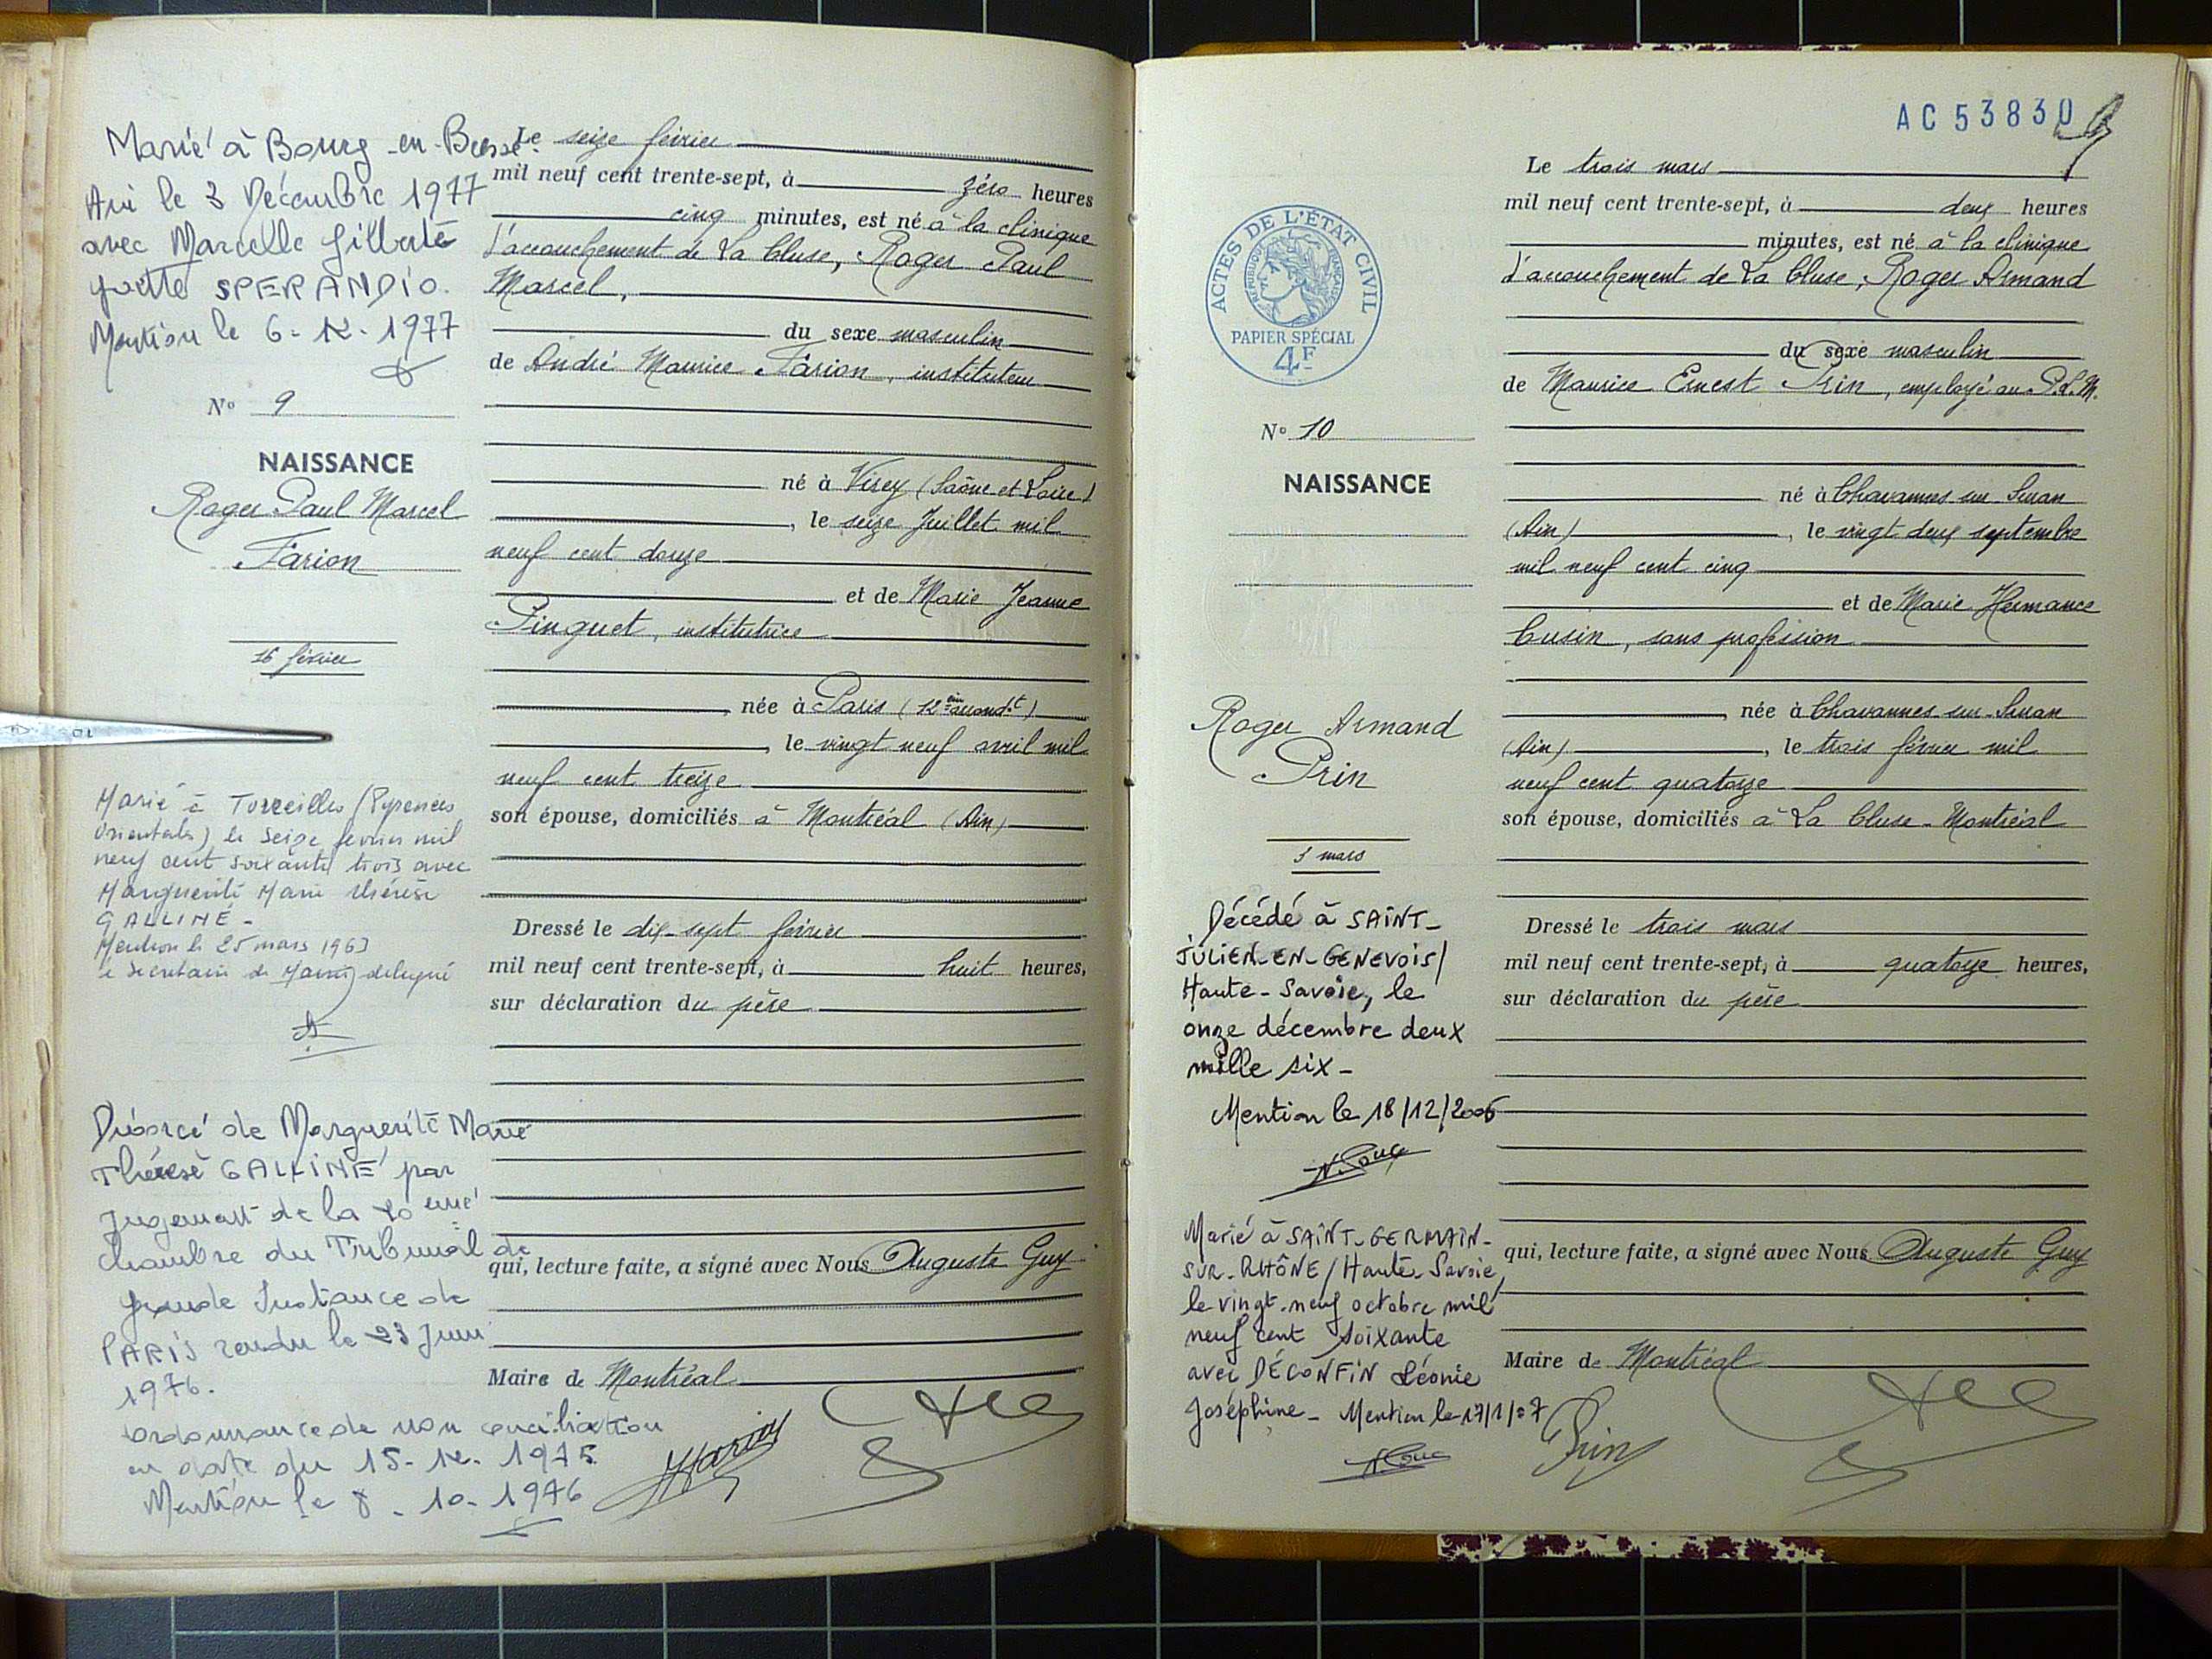 Marié à Bourg-en-Bresse
Ain le 3 Décembre 1977
avec Marcelle Gilberte
Yvette SPERANDIO.
Mention le 6-12-1977
N° 9
NAISSANCE
Roger Paul Marcel
Farion
16 février
Marié à Torreilles (Pyrénées
Orientales) le seize février mil
neuf cent soixante trois avec
Marguerite Marie Thérèse
GALLINÉ -
Mention le 25 mars 1963
le secrétaire de Mairie délégué
Divorcé de Marguerite Marie
Thérèse GALLINÉ par
Jugement de la
chambre du Tribunal de
Grande Instance de
PARIS rendu le 23 Juin
1976.
ordonnance de non conciliation
en date du 15-12-1975
Mention le 8-10-1976
Le seize février
mil neuf cent trente-sept, à zéro heures
cinq minutes, est né à la clinique
d'accouchement de La Cluse, Roger Paul
Marcel,
du sexe masculin
de André Maurice Farion, instituteur
né à Virey (Saône et Loire)
, le seize Juillet mil
neuf cent douze
et de Marie Jeanne
Pinguet, institutrice
née à Paris (12ème arrondt)
, le vingt neuf avril mil
neuf cent treize
son épouse, domiciliés à Montréal (Ain)
Dressé le dix-sept février
mil neuf cent trente-sept, à huit heures,
sur déclaration du père
qui, lecture faite, a signé avec Nous Auguste Guy
Maire de Montréal
AC 53830
ACTES DE L'ÉTAT CIVIL
RÉPUBLIQUE FRANÇAISE
PAPIER SPÉCIAL
4F
N° 10
NAISSANCE
Roger Armand
Prin
3 mars
Décédé à SAINT-
JULIEN-EN-GENEVOIS/
Haute-Savoie, le
onze décembre deux
mille six-
Mention le 18/12/2006
Marié à SAINT-GERMAIN-
SUR-RHÔNE/Haute-Savoie,
le vingt-neuf octobre mil
neuf cent soixante
avec DÉCONFIN Léonie
Joséphine- Mention le 17/1/07
Le trois mars
mil neuf cent trente-sept, à deux heures
minutes, est né à la clinique
d'accouchement de La Cluse, Roger Armand
du sexe masculin
de Maurice Ernest Prin, employé au P.L.M.
né à Chavannes sur Suran
(Ain) , le vingt deux septembre
mil neuf cent cinq
et de Marie Hermance
Cusin, sans profession
née à Chavannes sur Suran
(Ain) , le trois février mil
neuf cent quatorze
son épouse, domiciliés à La Cluse-Montréal
Dressé le trois mars
mil neuf cent trente-sept, à quatorze heures,
sur déclaration du père
qui, lecture faite, a signé avec Nous Auguste Guy
Maire de Montréal
Prin